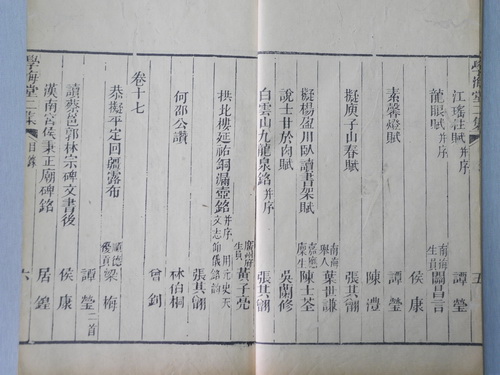 學海堂二集
五
江瑤柱賦并序
龍眼賦并序 南海生員 關昌言
侯康
素馨燈賦 譚瑩
陳澧
擬庾子山春賦 南海舉人 葉世謙
擬楊盈川臥讀書架賦 嘉應廩生 陳士荃
說士甘於肉賦 吳蘭修
白雲山九龍泉銘并序 張其䎖
拱北樓延祐銅漏壺銘并序用元史天文志簡儀銘韻 廣州府生員 黃子亮
張其䎖
何邵公讚 林伯桐
曾釗
卷十七
恭擬平定回疆露布 順德優貢 梁梅
譚瑩二首
讀蔡邕郭林宗碑文書後 侯康
漢南宮侯秉正廟碑銘 居鍠
學海堂二集
目錄
六